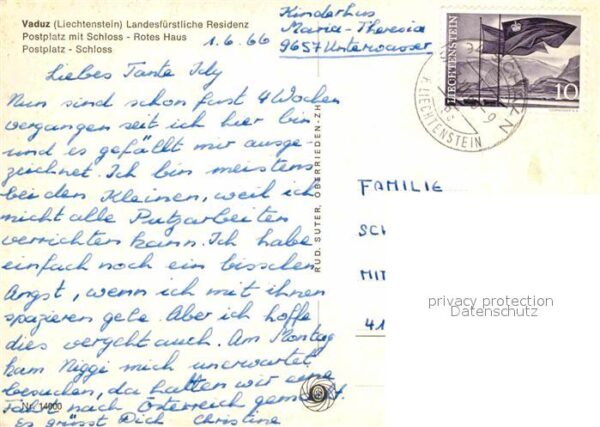 Vaduz (Liechtenstein) Landesfürstliche Residenz
Postplatz mit Schloss - Rotes Haus
Postplatz - Schloss
1.6.66
Kinderhus
Maria-Theresia
9657 Unterwasser
Liebes Tante Idy
Nun sind schon fast 4 Wochen
vergangen seit ich hier bin
und es gefällt mir ausge-
zeichnet. Ich bin meistens
bei den Kleinen, weil ich
nicht alle Putzarbeiten
verrichten kann. Ich habe
einfach noch ein bisschen
Angst, wenn ich mit ihnen
spazieren gehe. Aber ich hoffe
dies vergeht auch. Am Montag
kam Niggi mich unerwartet
besuchen, da hatten wir eine
nach Österreich gemacht.
Es grüsst Dich Christine
Nr. 14000
RUD. SUTER, OBERRIEDEN-ZH
LIECHTENSTEIN
10
F. LIECHTENSTEIN
FAMILIE
SC
MIT
41
privacy protection
Datenschutz